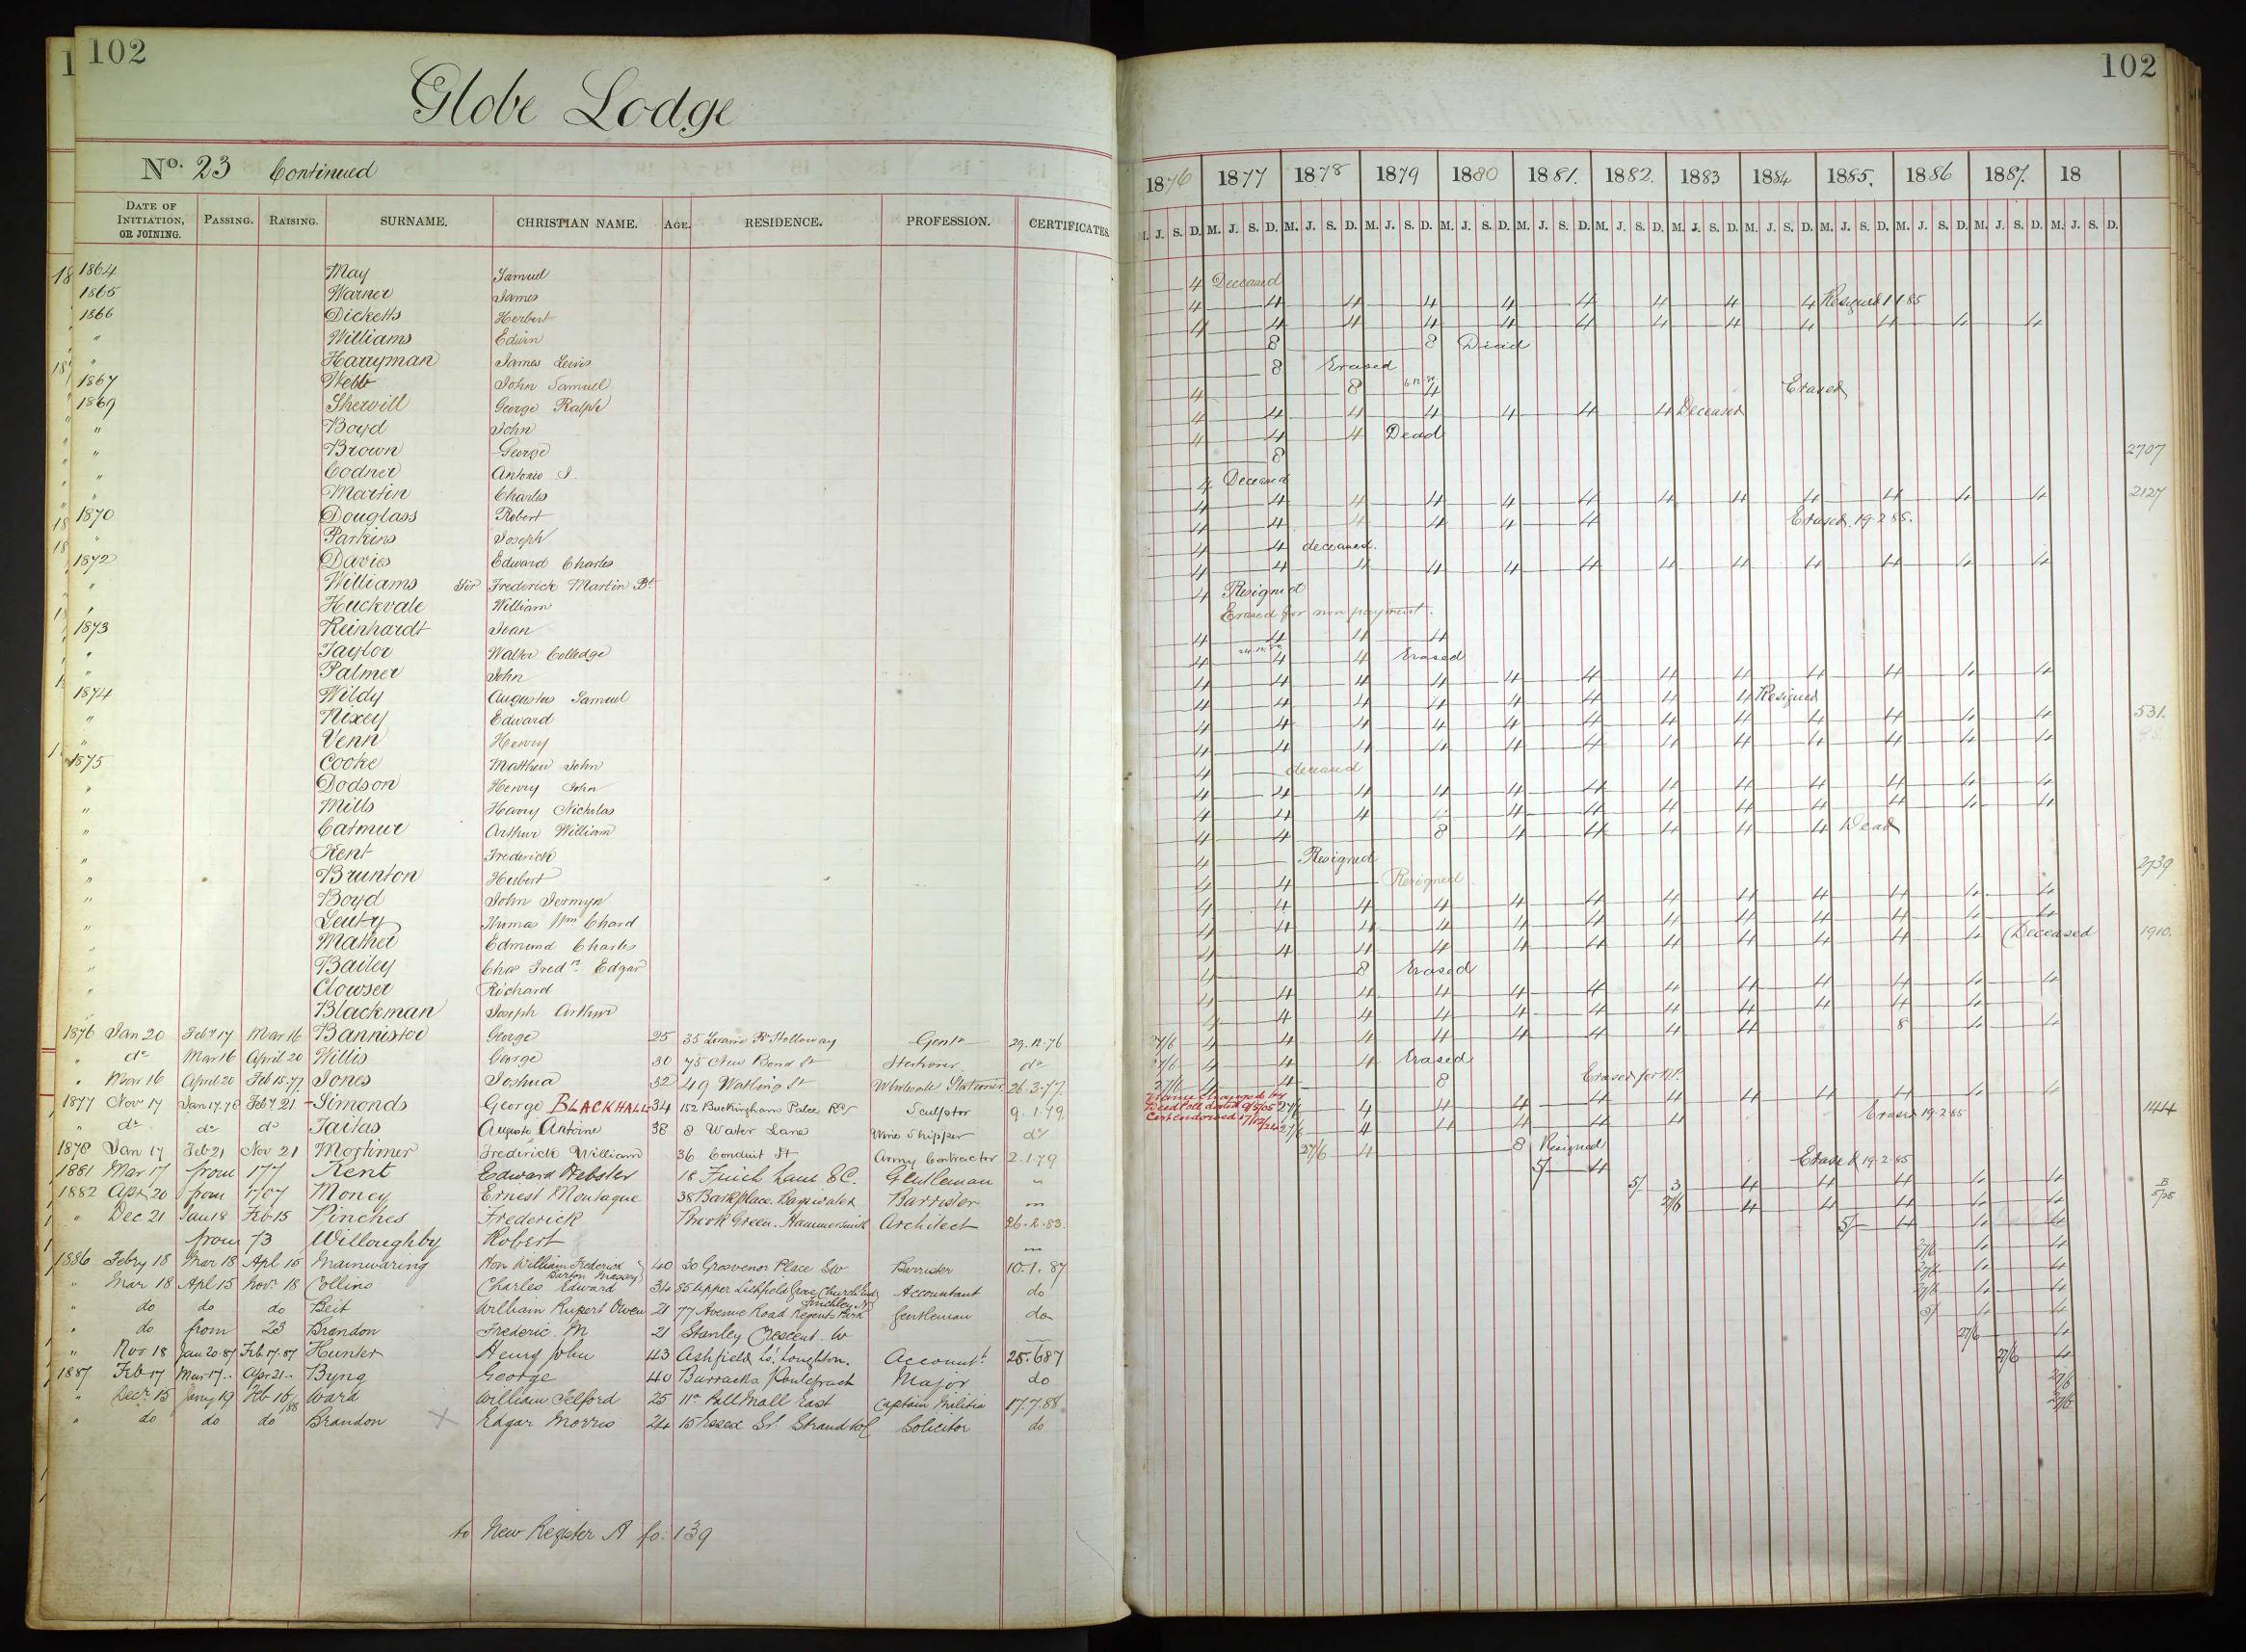 102
Globe Lodge
No. 23 Continued
DATE OF INITIATION, OR JOINING. PASSING. RAISING. SURNAME. CHRISTIAN NAME. AGE. RESIDENCE. PROFESSION. CERTIFICATES.
1864 May Samuel
1865 Warner James
1866 Dicketts Herbert
" Williams Edwin
" Harryman James Lewis
1867 Webb John Samuel
1869 Shervill George Ralph
" Boyd John
" Brown George
" Codner Antonio J.
" Martin Charles
1870 Douglass Robert
" Parkins Joseph
1872 Davies Edward Charles
" Williams Sir Frederick Martin Bt.
" Huckvale William
1873 Reinhardt Jean
" Taylor Walter Colledge
" Palmer John
1874 Wildy Augustus Samuel
" Nixey Edward
" Venn Henry
1875 Cooke Matthew John
" Dodson Henry John
" Mills Harry Nicholas
" Catmur Arthur William
" Kent Frederick
" Brunton Herbert
" Boyd John Jermyn
" Leuty Thomas Wm Chard
" Mather Edmund Charles
" Bailey Chas Fredk. Edgar
" Clowser Richard
" Blackman Joseph Arthur
1876 Jan 20 Feby 17 Mar 16 Bannister George 25 35 Loraine Rd Holloway Gentn 29.12.76
" do Mar 16 April 20 Willis George 30 75 New Bond St Stationer do
" Mar 16 April 20 Feb 15.77 Jones Joshua 32 49 Watling St Wholesale Stationer 26.3.77.
1877 Nov 17 Jan 17.78 Feby 21. Simonds George BLACKHALL 34 152 Buckingham Palce Rd Sculptor 9.1.79.
" do do do Taitas Auguste Antoine 38 8 Water Lane Wine Shipper do
1878 Jan 17 Feb 21 Nov 21 Mortimer Frederick William 36 Conduit St Army Contractor 2.1.79
1881 Mar 17 from 177 Kent Edward Webster 18 Finch Lane E.C. Gentleman "
1882 Apr 20 from 1707 Money Ernest Montague 38 Park place. Bayswater Barrister
" Dec 21 Jan 18 Feb 15 Pinches Frederick Brook Green. Hammersmith Architect 26.2.83.
from 73 Willoughby Robert
1886 Febry 18 Mar 18 Apl 15 Mainwaring Hon William Frederick Barton Massey 40 30 Grosvenor Place SW Barrister 10.1.87
" Mar 18 Apl 15 Novr 18 Collins Charles Edward 34 85 Upper Lichfield Grove Church End Finchley N Accountant do
" do do do Beit William Rupert Owen 21 77 Avenue Road Regents Park Gentleman do
" do from 23 Brandon Frederic. M 21 Stanley Crescent. W
" Nov 18 Jan 20.87 Feb 17.87 Hunter Henry John 43 Ashfield Lo. Loughton. Accountt. 25.6 87
1887 Feb 17 Mar 17.. Apr 21.. Byng George 40 Barracks Pontefract Major do
" Decr 15 Jany 19 Feb 16/88 Ward William Telford 25 11a Pall Mall East Captain Militia 17.7.88
" do do do Brandon X Edgar Morris 24 15 Essex St. Strand WC Solicitor do
to New Register A fo: 139
102
1876 1877 1878 1879 1880 1881. 1882. 1883 1884 1885. 1886 1887. 18
M. J. S. D. M. J. S. D. M. J. S. D. M. J. S. D. M. J. S. D. M. J. S. D. M. J. S. D. M. J. S. D. M. J. S. D. M. J. S. D. M. J. S. D. M. J. S. D. M. J. S. D.
4 Deceased
4 4 4 4 4 4 4 4 4 Resigned 1 1 85
4 4 4 4 4 4 4 4 4 4 4 4
8 8 Dead
8 Erased
4 8 4 Erased
4 4 4 4 4 4 4 Deceased
4 4 4 Dead
8 2707
4 Deceased
4 4 4 4 4 4 4 4 4 4 4 4 2127
4 4 4 4 4 4 Erased. 19.2 85.
4 4 deceased.
4 4 4 4 4 4 4 4 4 4 4 4
4 Resigned
Erased for non payment.
4 4 4 4
4 4 4 Erased
4 4 4 4 4 4 4 4 4 4 4 4
4 4 4 4 4 4 4 4 Resigned
4 4 4 4 4 4 4 4 4 4 4 4 531.
4 4 4 4 4 4 4 4 4 4 4 4
4 deceased
4 4 4 4 4 4 4 4 4 4 4 4
4 4 4 4 4 4 4 4 4 4 4 4
4 4 8 4 4 4 4 4 Dead
4 Resigned 2739
4 4 Resigned
4 4 4 4 4 4 4 4 4 4 4 4
4 4 4 4 4 4 4 4 4 4 4 4
4 4 4 4 4 4 4 4 4 4 4 Deceased 1910.
4 8 Erased
4 4 4 4 4 4 4 4 4 4 4 4
4 4 4 4 4 4 4 4 4 4 4
27/6 4 4 4 4 4 4 4 8 4 4
27/6 4 4 4 Erased
27/6 4 4 8 Erased for N.P.
Name changed by Deed Poll dated 9/5/05 Cert endorsed 17/12/24
27/6 4 4 4 4 4 4 4 4 4 4 1444
27/6 4 4 4 4 4 4 Erased 19.2 85
27/6 4 8 Resigned
5/- 4 Erased 19.2 85
5/- 3 4 4 4 4 4
27/6 4 4 4 4 4
5/- 4 4 4
27/6 4 4
27/6 4
27/6 4
5/ 4
27/6 4
27/6 4
27/6
27/6